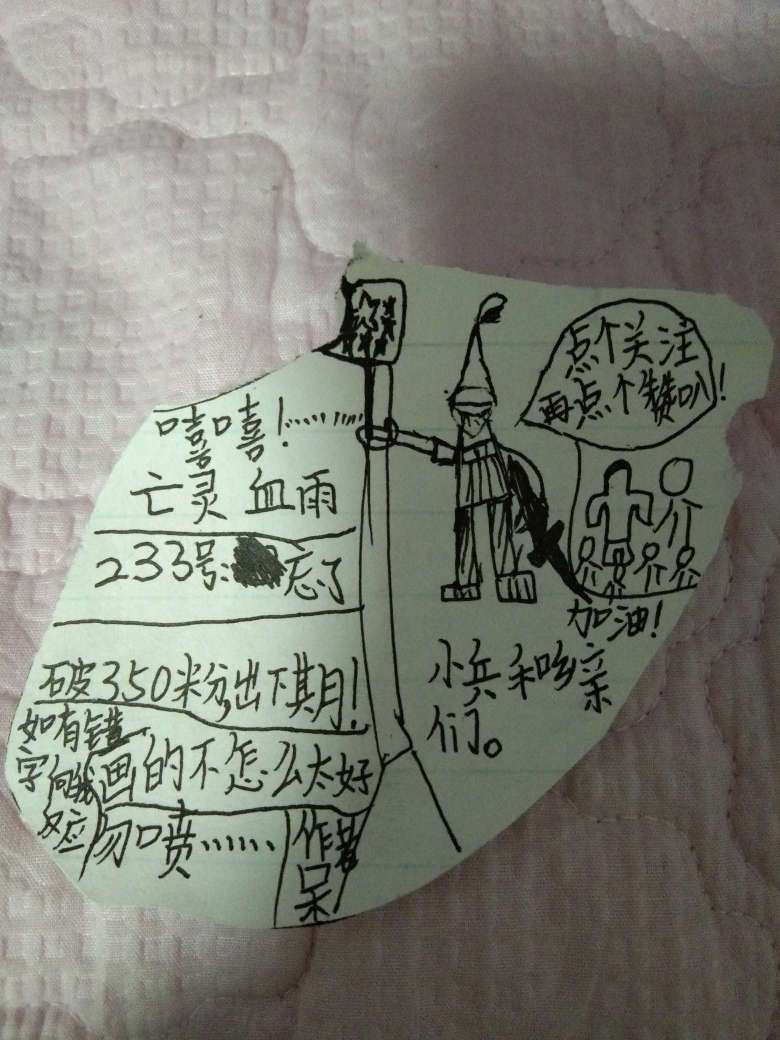 嘻嘻!……
亡灵血雨
233号:忘了
破350粉出下期!
如有错
字向我
反应
画的不怎么太好
勿喷……
作者
呆
点个关注
再点个赞叭!
加油!
小兵和呦亲
们。